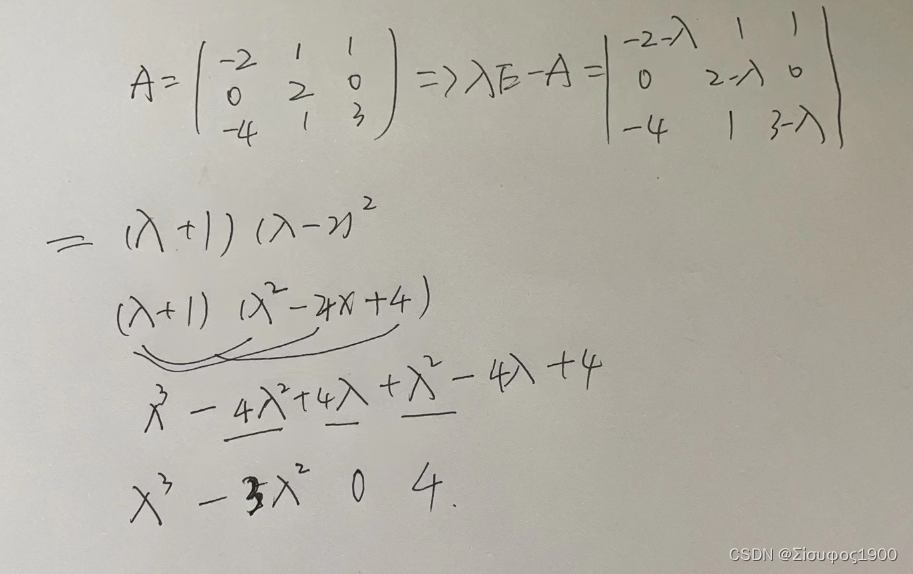 A = ( -2 1 1 ; 0 2 0 ; -4 1 3 ) => λE-A = | -2-λ 1 1 ; 0 2-λ 0 ; -4 1 3-λ |
= (λ+1) (λ-2)²
(λ+1) (λ²-4λ+4)
λ³ - 4λ²+4λ + λ² - 4λ + 4
λ³ - 3λ² 0 4.
CSDN @Σίσυφος1900